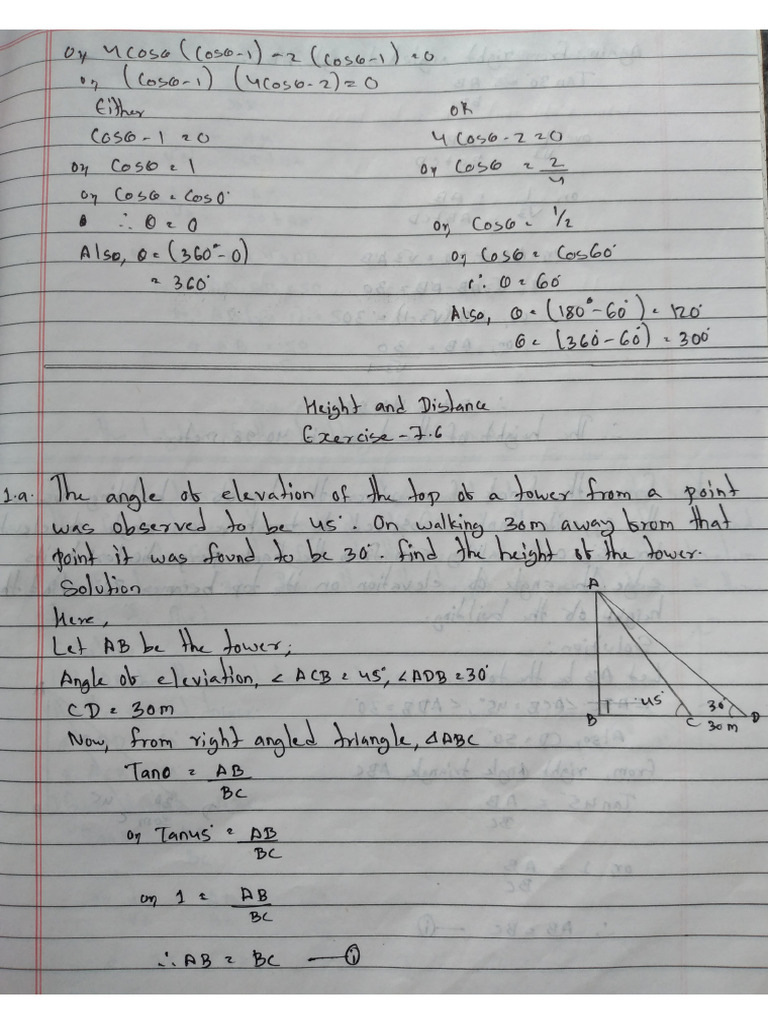 or 4cosθ (cosθ-1) -2 (cosθ-1) =0
or (cosθ-1) (4cosθ-2)=0
Either OR
cosθ-1=0 4cosθ-2=0
or cosθ=1 or cosθ = 2/4
or cosθ=cos0°
∴ θ=0 or, cosθ= 1/2
Also, θ=(360°-0) or cosθ=cos60°
= 360° ∴ θ=60°
Also, θ=(180°-60°)=120°
θ=(360°-60°)=300°
Height and Distance
Exercise-7.6
1.a. The angle of elevation of the top of a tower from a point
was observed to be 45°. On walking 30m away from that
point it was found to be 30°. find the height of the tower.
Solution
Here,
Let AB be the tower;
Angle of eleviation, ∠ACB=45°, ∠ADB=30°
CD=30m
Now, from right angled triangle, △ABC
Tanθ = AB/BC
or Tan45° = AB/BC
or 1 = AB/BC
∴ AB = BC —(i)
A
B
45°
C
30°
30m
D